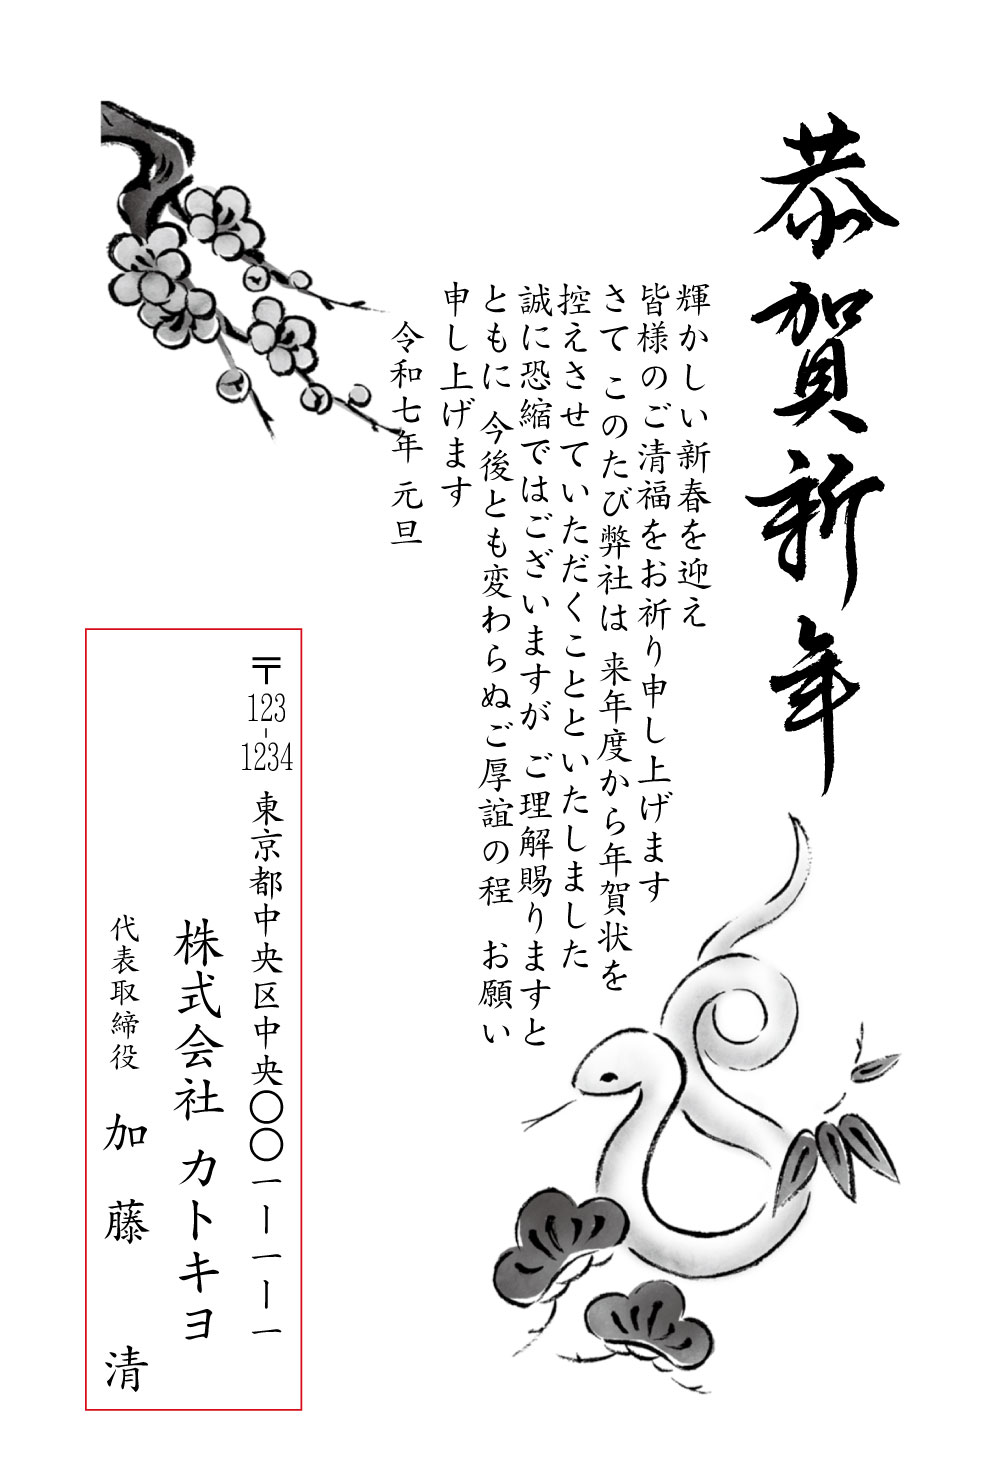 恭賀新年
輝かしい新春を迎え
皆様のご清福をお祈り申し上げます
さて このたび弊社は 来年度から年賀状を
控えさせていただくことといたしました
誠に恐縮ではございますが ご理解賜りますと
ともに 今後とも変わらぬご厚誼の程 お願い
申し上げます
令和七年 元旦
〒123-1234 東京都中央区中央〇〇一ー一ー一
株式会社 カトキヨ
代表取締役 加藤 清